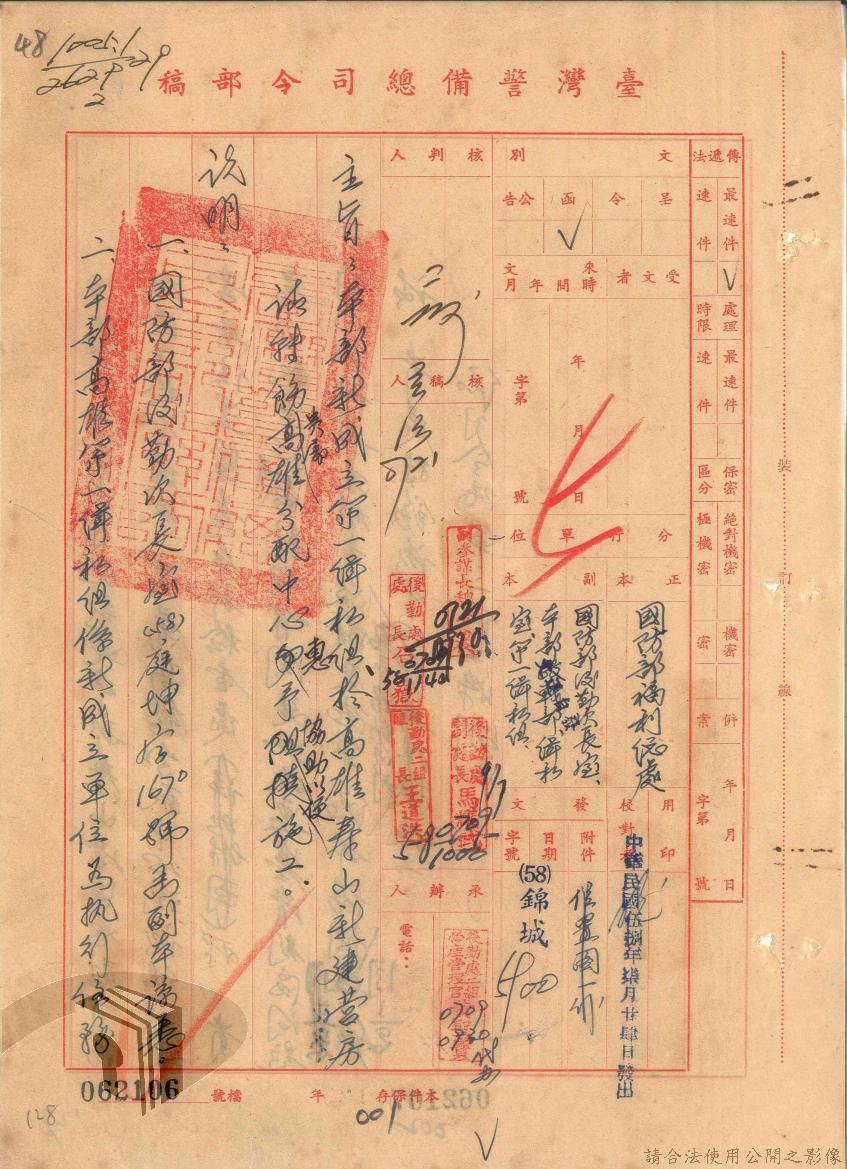 48
1005.1
2627.9
2
29
臺灣警備總司令部稿
傳遞法
最速件
速件
處理時限
最速件
速件
保密區分
絕對機密
極機密
機密
密
併案
年月日
字第號
文別
呈
令
函
公告
受文者
來文時間年月
年月日
字第號
分行單位
正本
副本
國防部福利總處
國防部後勤次長室、
室、第一緝私組
用印
校對
發文
附件
日期
字號
位置圖一份
中華民國伍捌年柒月廿肆日發出
(58)錦城
5400
核判人
核稿人
0721
副參謀長
0721
後勤處處長石
58
1140
後勤處副處長馬
0709
1000
後勤處二組組長王道洪
580
承辦人
電話：
後勤處二組
0709
0930
主旨：本部新成立第一緝私組於高雄壽山新建營房
請轉飭高雄分配中心惠予協助以便施工。
說明：
一、國防部後勤次長室(58)庭坤字1670號副本諒悉。
二、本部高雄第一緝私組係新成立單位為執行任務
062106
檔號
年
本件保存
001
128
裝訂線
請合法使用公開之影像